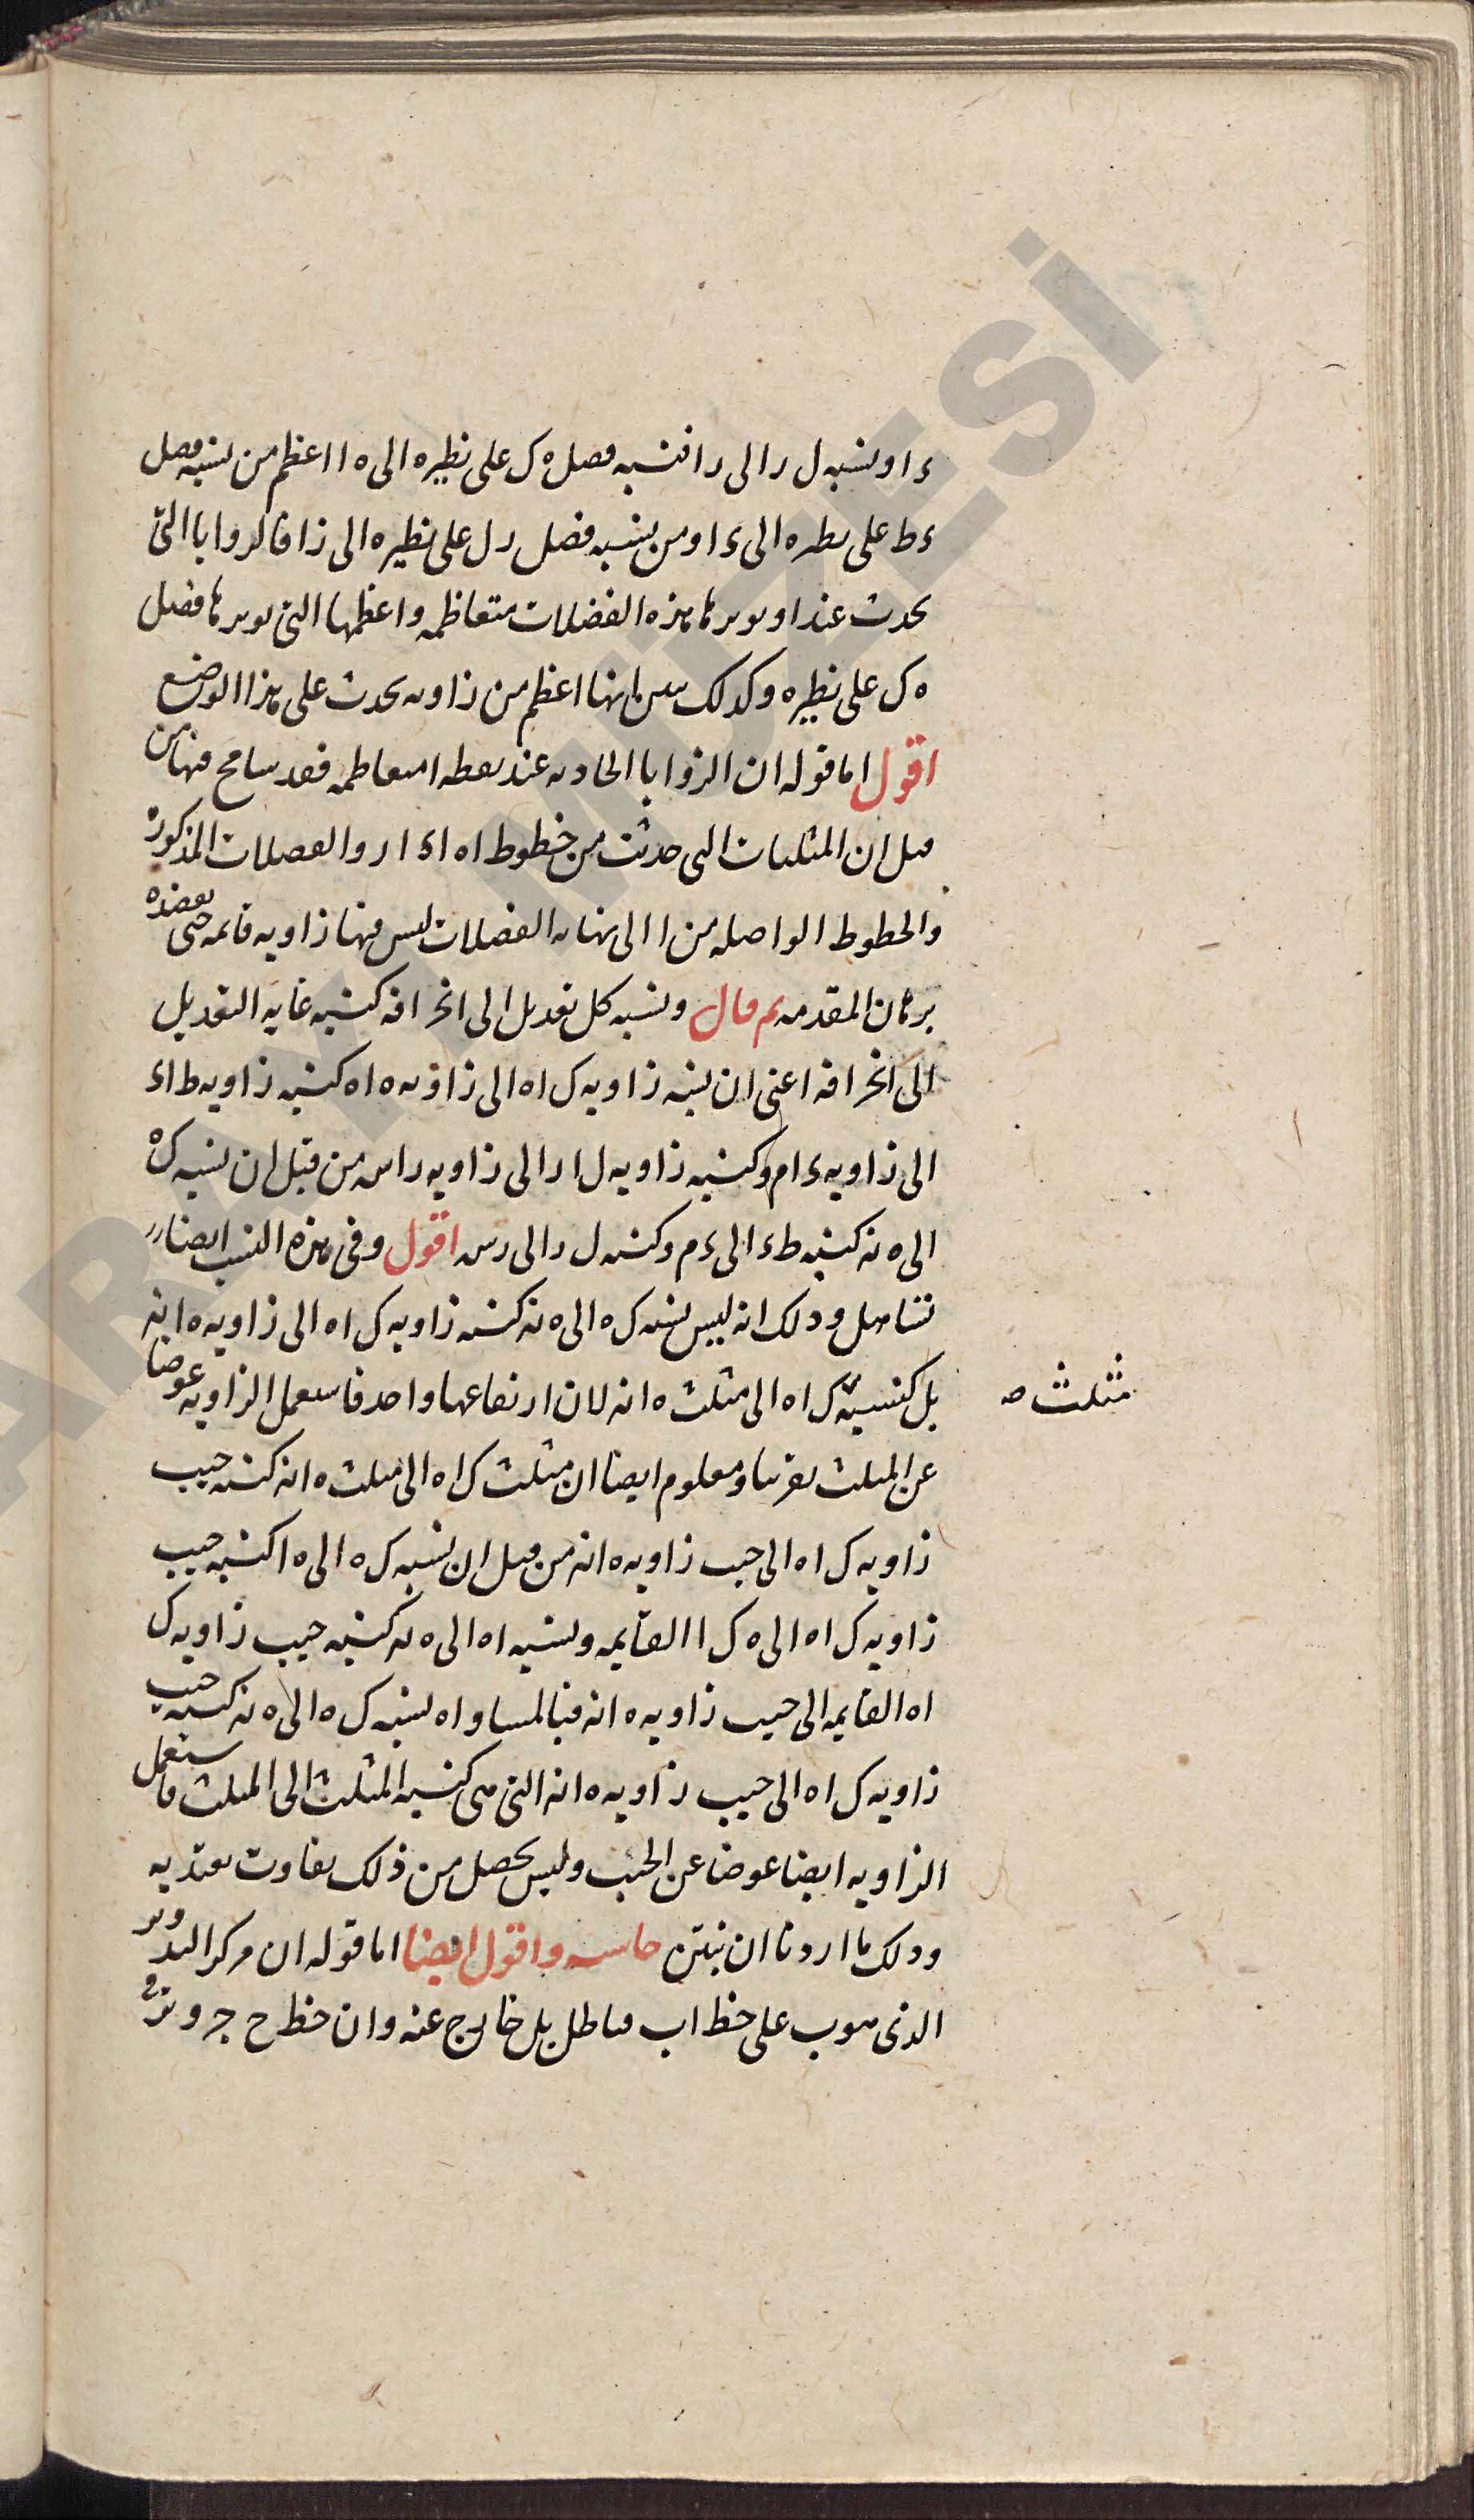 ء ا ونسبه ل ر الى ر ا فنسبه فصل ه ك على نظيره الى ه ا اعظم من نسبه فصل
ء ط على نطره الى ء ا ومن نسبه فضل ر ل على نظيره الى ز ا فالزوايا التى
يحدث عند ا ويوترها هذه الفضلات متعاظمه واعظمها التى يوترها فضل
ه ك على نظيره وكذلك يبين انها اعظم من زاويه يحدث على هذا الوضع
اقول اما قوله ان الزوايا الحادثه عند نقطه ا متعاظمه فقد سامح فيها من
قبل ان المثلثات التى حدثت من خطوط ا ه ا ء ا ر والفصلات المذكورة
والخطوط الواصله من ا الى نهايه الفضلات ليس فيها زاويه قائمه حتى يعضده
برهان المقدمه ثم قال ونسبه كل تعديل الى انحرافه كنسبه غاية التعديل
الى انحرافه اعنى ان نسبه زاويه ك ا ه الى زاويه ه ا ن كنسبه زاويه ط ا ء
الى زاويه ء ا م وكنسبه زاويه ل ا ر الى زاويه ر ا س من قبل ان نسبه ك ه
الى ه ن كنسبه ط ء الى ء م وكنسبه ل ر الى ر س اقول وفى هذه النسب ايضا
تساهل وذلك انه ليس نسبه ك ه الى ه ن كنسبه زاويه ك ا ه الى زاويه ه ا ن
بل كنسبة ك ا ه الى مثلث ه ا ن لان ارتفاعهما واحد فاستعمل الزاويه عوضا
مثلث صـ
عن المثلث تقريبا ومعلوم ايضا ان مثلث ك ا ه الى مثلث ه ا ن كنسبه جيب
زاويه ك ا ه الى جيب زاويه ه ا ن من قبل ان نسبه ك ه الى ه ا كنسبه جيب
زاويه ك ا ه الى ه ك ا القائمه ونسبه ا ه الى ه ن كنسبه جيب زاويه ك
ا ه القايمه الى جيب زاويه ه ا ن فبالمساواه نسبه ك ه الى ه ن كنسبه جيب
زاويه ك ا ه الى جيب زاويه ه ا ن التى هى كنسبه المثلث الى المثلث فاستعمل
الزاويه ايضا عوضا عن الجيب وليس يحصل من ذلك تفاوت يعتد به
وذلك ما اردنا ان نبيّن حاشيه واقول ايضا اما قوله ان مركز التدوير
الذى هو ب على خط ا ب فباطل بل خارج عنه وان خط ح ج